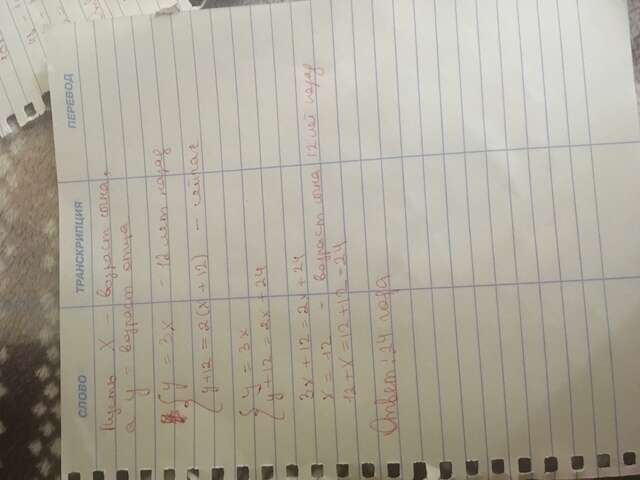 СЛОВО ТРАНСКРИПЦИЯ ПЕРЕВОД
Пусть X - возраст сына,
а y - возраст отца
{ y = 3x - 12 лет назад
{ y+12 = 2(x+12) - сейчас
{ y = 3x
{ y+12 = 2x+24
3x+12 = 2x+24
x = 12 - возраст сына 12 лет назад
12+x = 12+12 = 24
Ответ: 24 года